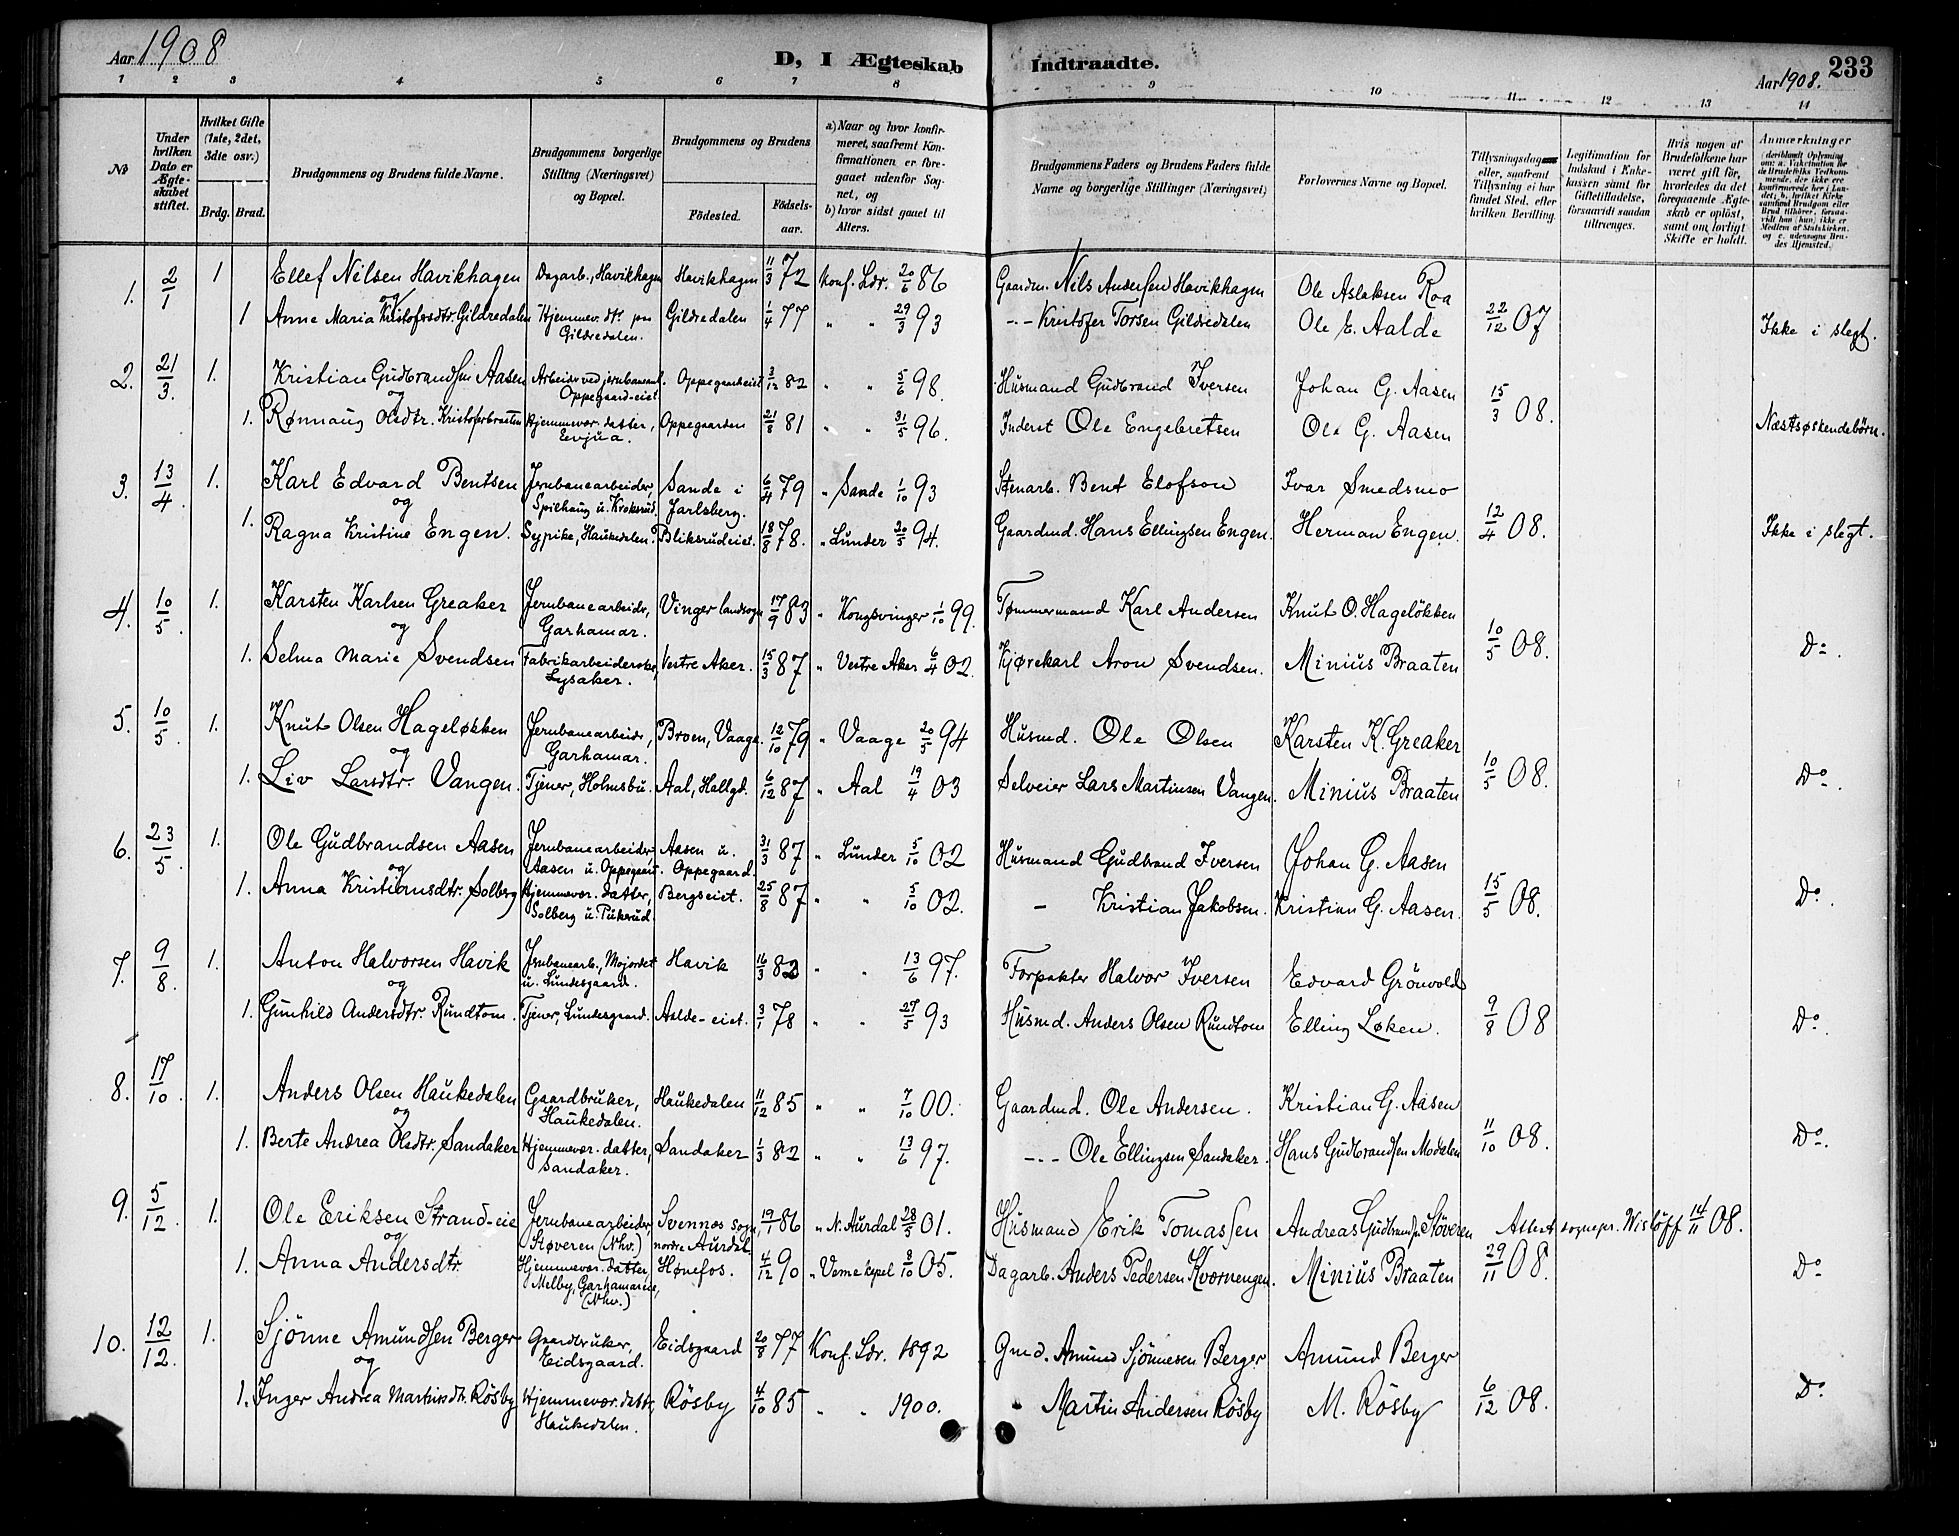 Aar 1908
D, I Ægteskab Indtraadte.
Aar 1908. 233
1 2 3 4 5 6 7 8 9 10 11 12 13 14
No
Under hvilken Dato er Ægteskabet stiftet.
Hvilket Gifte (1ste, 2det, 3die osv.)
Brdg. Brud.
Brudgommens og Brudens fulde Navne.
Brudgommens borgerlige Stilling (Næringsvei) og Bopæl.
Brudgommens og Brudens
Fødested. Fødselsaar.
a) Naar og hvor konfirmeret, saafremt Konfirmationen er foregaaet udenfor Sognet, og
b) hvor sidst gaaet til Alters.
Brudgommens Faders og Brudens Faders fulde Navne og borgerlige Stillinger (Næringsvei)
Forlovernes Navne og Bopæl.
Tillysningsdag eller, saafremt Tillysning ei har fundet Sted, efter hvilken Bevilling.
Legitimation for Indskud i Enkekassen samt for Giftetilladelse, forsaavidt saadan tiltrænges.
Hvis nogen af Brudefolkene har været gift før, hvorledes da det foregaaende Ægteskab er opløst, samt om lovligt Skifte er holdt.
Anmærkninger
1. 2/1 1 Ellef Nilsen Havikhagen Dagarb., Havikhagen Havikhagen 11/3 72 Konf. Ldr. 20/6 86 Gaardm. Nils Andersen Havikhagen Ole Aslaksen Roa
og
1 Anne Maria Kristofersdtr. Gildredalen Hjemmev. dtr. paa Gildredalen. Gildredalen 1/4 77 " " 29/3 93 -- Kristofer Torsen Gildredalen Ole E. Aalde 22/12 07 Ikke i slegt.
2. 21/3. 1. Kristian Gudbrandsen Aasen Arbeider ved jernbaneanl. Oppegaard-eiet Oppegaardseiet 3/12 82 " " 5/6 98. Husmand Gudbrand Iversen Johan G. Aasen
og
1. Rønnaug Olsdtr. Kristoferbraaten Hjemmevær. datter, Evjua. Oppegaarden 21/8 81 " " 31/5 96. Inderst Ole Engebretsen Ole G. Aasen 15/3 08. Næstsøskendebørn.
3. 13/4 1. Karl Edvard Bentsen Jernbanearbeider, Spilhaug u. Kroksrud. Sande i Jarlsberg. 6/4 79 " Sande 1/10 93 Stenarb. Bent Elofson Ivar Smedsmo
og
1. Ragna Kristine Engen. Sypike, Haukedalen Bliksrudeiet. 18/8 78. " Lunder 20/5 94. Gaardmd. Hans Ellingsen Engen. Herman Engen. 12/4 08. Ikke i slegt.
4. 10/5. 1. Karsten Karlsen Greaker Jernbanearbeider, Garhamar. Vinger landsogn 17/9 83 " Kongsvinger 1/10 99. Tømmermand Karl Andersen Knut O. Hageløkken
og
1. Selma Marie Svendsen Fabrikarbeiderske, Lysaker. Vestre Aker. 15/3 87 " Vestre Aker 6/4 02. Kjørekarl Aron Svendsen. Minius Braaten 10/5 08. Do.
5. 10/5. 1. Knut Olsen Hageløkken Jernbanearbeider, Garhamar. Broen, Vaage. 12/10 79 " Vaage 20/5 94 Husmd. Ole Olsen Karsten K. Greaker
og
1. Liv Larsdtr. Vangen. Tjener, Holmsbu. Aal, Hallgd. 6/12 87 " Aal 19/4 03 Selveier Lars Martinsen Vangen. Minius Braaten 10/5 08. Do.
6. 23/5. 1. Ole Gudbrandsen Aasen Jernbanearbeider Aasen u. Oppegaard. Aasen u. Oppegaard. 31/3 87 " Lunder 5/10 02 Husmand Gudbrand Iversen Johan G. Aasen
og
1. Anna Kristiansdtr. Solberg Hjemmevær. datter, Solberg u. Tukerud. Bergseiet. 25/8 87 " " 5/10 02. - Kristian Jakobsen. Kristian G. Aasen. 15/5 08. Do.
7. 9/8. 1. Anton Halvorsen Havik Jernbanearb., Mojordet u. Lundesgaard. Havik 16/3 82 " " 13/6 97. Forpakter Halvor Iversen Edvard Grönvold
og
1. Gunhild Andersdtr. Rundtom. Tjener, Lundesgaard. Aalde-eiet. 3/1 78 " " 27/5 93 Husmd. Anders Olsen Rundtom Elling Løken. 9/8 08 Do.
8. 17/10 1. Anders Olsen Haukedalen Gaardbruker, Haukedalen. Haukedalen 11/12 85 " " 7/10 00. Gaardmd. Ole Andersen. Kristian G. Aasen
og
1. Berte Andrea Olsdtr. Sandaker Hjemmevær. datter, Sandaker. Sandaker 1/3 82 " " 13/6 97. --- Ole Ellingsen Sandaker. Hans Gudbrandsen Modalen 11/10 08. Do.
9. 5/12. 1. Ole Eriksen Strand-eie Jernbanearbeider, Støveren (Nhv.) Svennæs sogn, nordre Aurdal 19/1 86 " N. Aurdal 28/5 01. Husmand Erik Tomassen Andreas Gudbrands. Støveren Attest sognepr. Wisløff 14/11 08.
og
1. Anna Andersdtr. Hjemmevær. datter, Melby, Garhamareie, (Nhv.) Hønefos. 4/12 90 " Veme kapel 8/10 05. Dagarb. Anders Pedersen Kværnengen. Minius Braaten 29/11 08. Do.
10. 12/12. 1. Sjönne Amundsen Berger Gaardbruker, Eidsgaard. Eidsgaard 20/8 77 Konf. Ldr. 1892 Gmd. Amund Sjönnesen Berger Amund Berger
og
1. Inger Andrea Martinsdtr. Rösby Hjemmevær. datter, Haukedalen. Rösby 4/10 85 " " 1900. " Martin Andersen Rösby M. Rösby 6/12 08. Do.